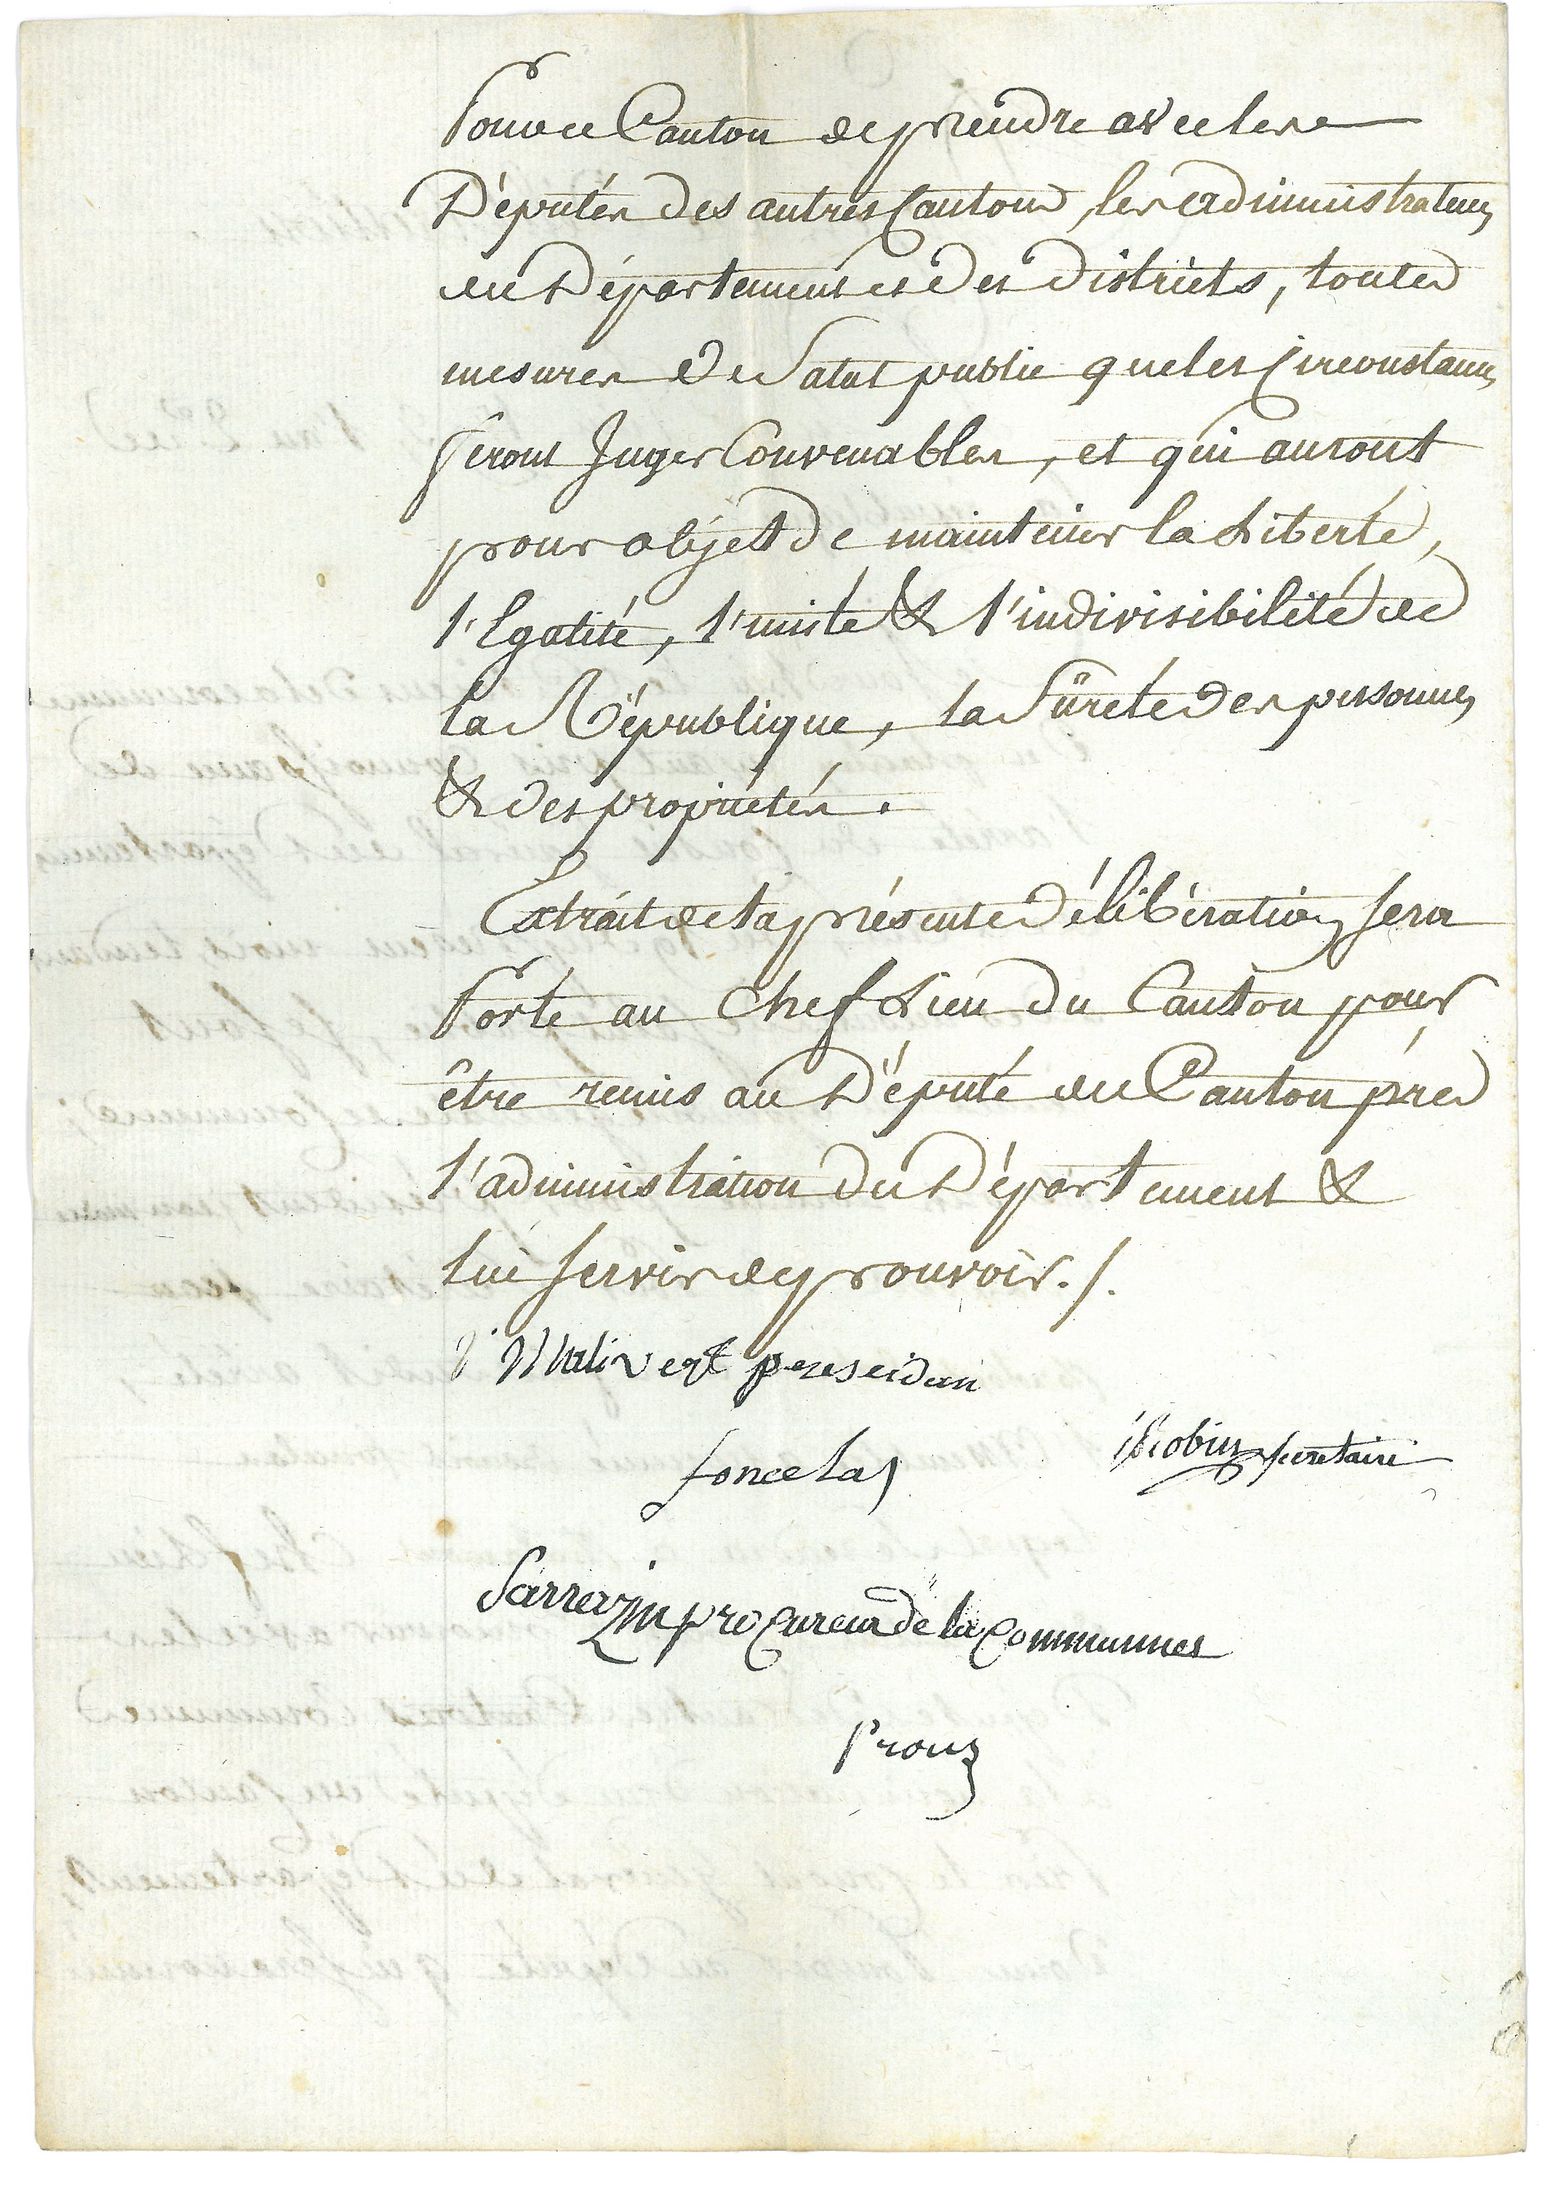 Pour ce Canton de prendre avec les
Députés des autres Cantons, les administrateurs
du Département et des districts, toutes
mesures de Salut public que les Circonstances
feront Juger Convenables, et qui auront
pour objet de maintenir la Liberté,
l'Egalité, l'unité & l'indivisibilité de
la République, la Sûreté des personnes
& des propriétés.
Extrait de la présente Délibération sera
Porté au Chef Lieu du Canton pour
être remis au Député du Canton près
l'administration du Département &
lui servir de pouvoir./.
Malivert preseidan
foncelas
secretaire
Sarrazin procureur de la Communnes
Prouz